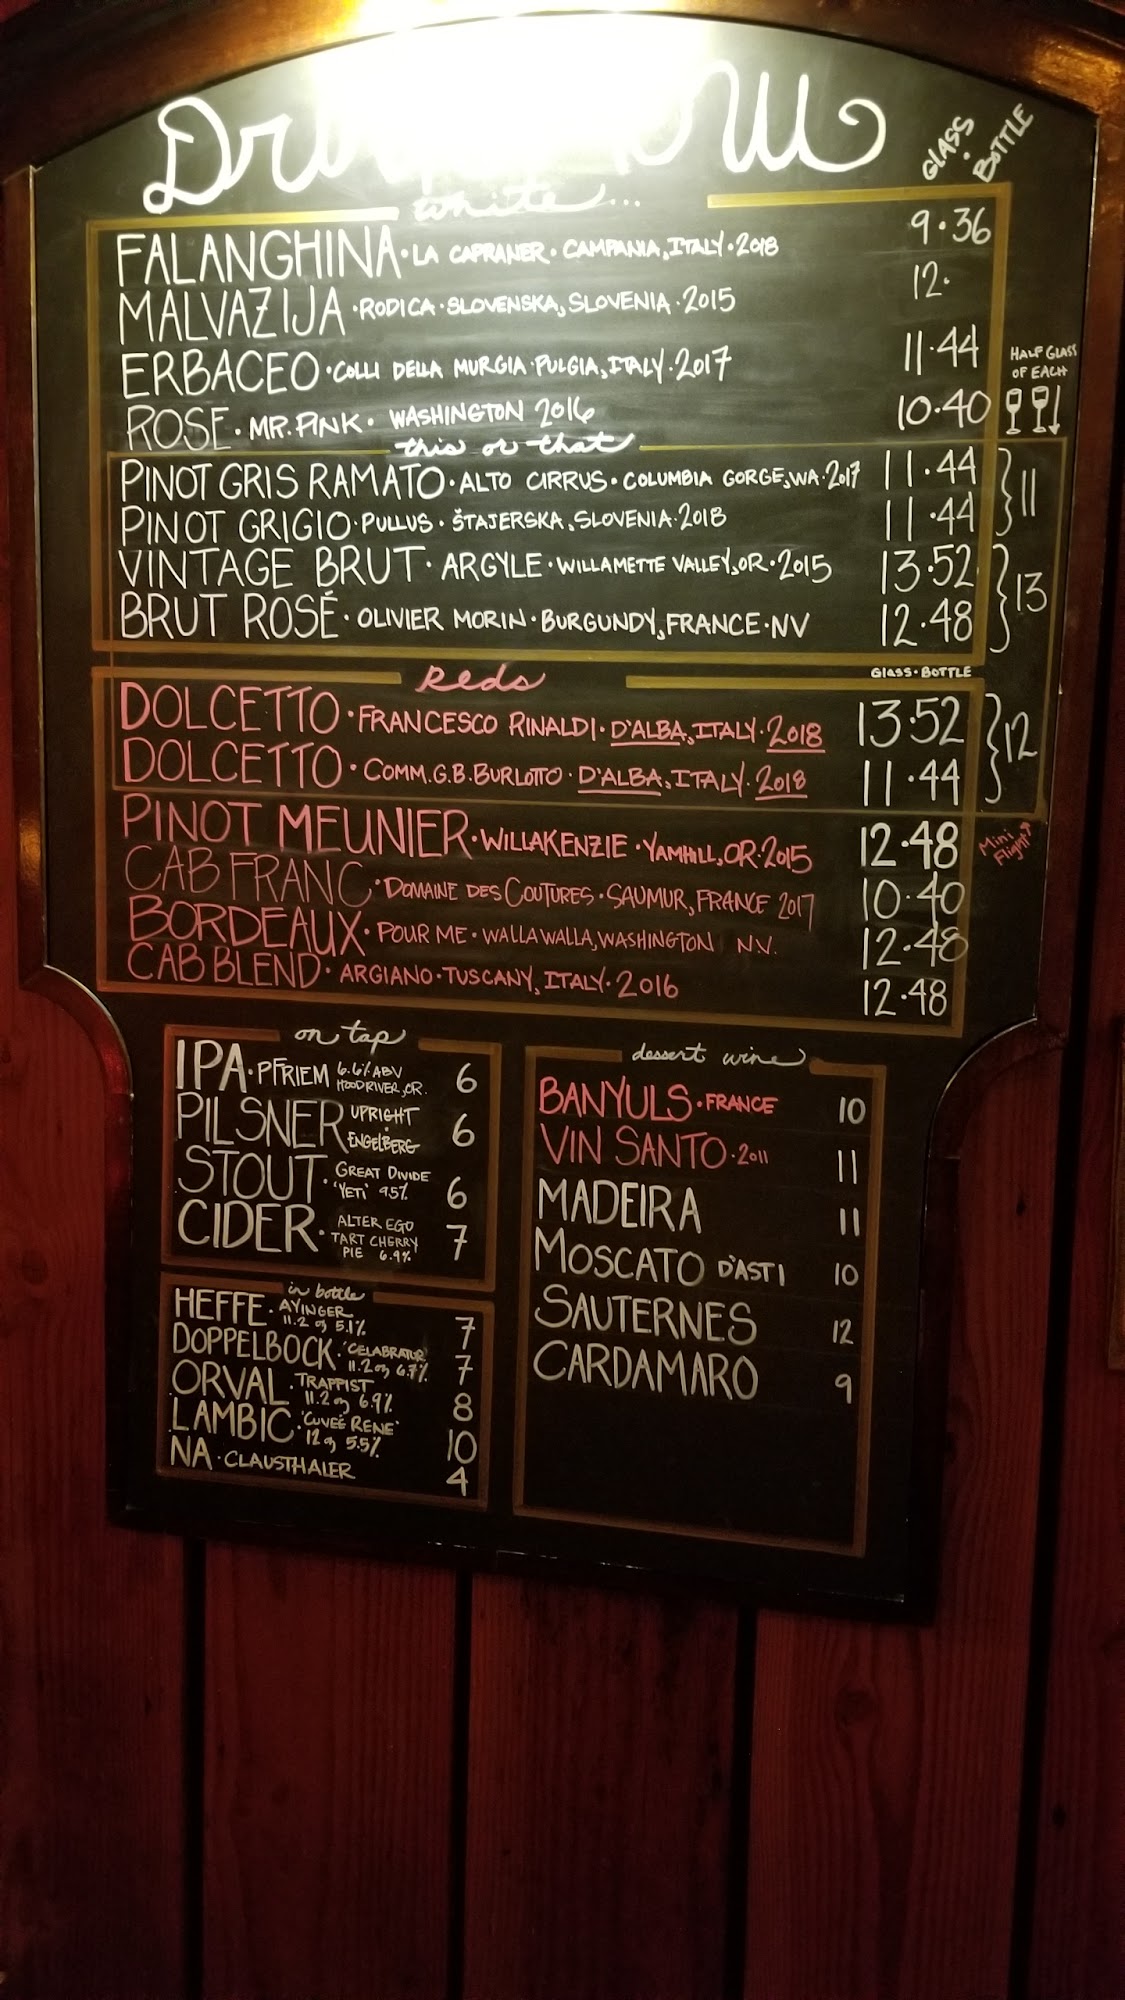 GLASS · BOTTLE
white...
FALANGHINA · LA CAPRANER · CAMPANIA, ITALY · 2018 9·36
MALVAZIJA · RODICA · SLOVENSKA, SLOVENIA · 2015 12·
ERBACEO · COLLI DELLA MURGIA · PULGIA, ITALY · 2017 11·44
HALF GLASS
OF EACH
ROSE · MR. PINK · WASHINGTON 2016 10·40
this or that
PINOT GRIS RAMATO · ALTO CIRRUS · COLUMBIA GORGE, WA · 2017 11·44
PINOT GRIGIO · PULLUS · ŠTAJERSKA, SLOVENIA · 2018 11·44
11
VINTAGE BRUT · ARGYLE · WILLAMETTE VALLEY, OR · 2015 13·52
BRUT ROSÉ · OLIVIER MORIN · BURGUNDY, FRANCE · NV 12·48
13
Reds
GLASS · BOTTLE
DOLCETTO · FRANCESCO RINALDI · D'ALBA, ITALY · 2018 13·52
DOLCETTO · COMM. G.B. BURLOTTO · D'ALBA, ITALY · 2018 11·44
12
Mini
Flight
PINOT MEUNIER · WILLAKENZIE · YAMHILL, OR · 2015 12·48
CAB FRANC · DOMAINE DES COUTURES · SAUMUR, FRANCE 2017 10·40
BORDEAUX · POUR ME · WALLA WALLA, WASHINGTON N.V. 12·48
CAB BLEND · ARGIANO · TUSCANY, ITALY · 2016 12·48
on tap
IPA · PFRIEM 6.6% ABV
HOOD RIVER, OR. 6
PILSNER UPRIGHT
ENGELBERG 6
STOUT · GREAT DIVIDE
'YETI' 9.5% 6
CIDER · ALTER EGO
TART CHERRY
PIE 6.9% 7
in bottle
HEFFE · AYINGER
11.2 oz 5.1% 7
DOPPELBOCK · 'CELABRATOR'
11.2 oz 6.7% 7
ORVAL · TRAPPIST
11.2 oz 6.9% 8
LAMBIC · 'CUVEÉ RENE'
12 oz 5.5% 10
NA · CLAUSTHALER 4
dessert wine
BANYULS · FRANCE 10
VIN SANTO · 2011 11
MADEIRA 11
MOSCATO D'ASTI 10
SAUTERNES 12
CARDAMARO 9